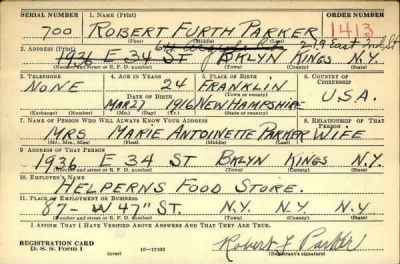 SERIAL NUMBER 1. NAME (Print) ORDER NUMBER
700 ROBERT FURTH PARKER 1413
(First) (Middle) (Last)
2. ADDRESS (Print) 219 East 2nd St
1936 E 34 ST BKLYN KINGS N.Y.
(Number and street or R. F. D. number) (Town) (County) (State)
3. TELEPHONE 4. AGE IN YEARS 5. PLACE OF BIRTH 6. COUNTRY OF CITIZENSHIP
NONE 24 FRANKLIN
DATE OF BIRTH (Town or county)
MAR 27 1916 NEW HAMPSHIRE U.S.A.
(Exchange) (Number) (Mo.) (Day) (Yr.) (State or country)
7. NAME OF PERSON WHO WILL ALWAYS KNOW YOUR ADDRESS 8. RELATIONSHIP OF THAT PERSON
MRS MARIE ANTOINETTE PARKER WIFE
(Mr., Mrs., Miss) (First) (Middle) (Last)
9. ADDRESS OF THAT PERSON
1936 E 34 ST BKLYN KINGS N.Y.
(Number and street or R. F. D. number) (Town) (County) (State)
10. EMPLOYER'S NAME
HELPERNS FOOD STORE.
11. PLACE OF EMPLOYMENT OR BUSINESS
87- W 47" ST. N.Y. N.Y. N.Y.
(Number and street or R. F. D. number) (Town) (County) (State)
I AFFIRM THAT I HAVE VERIFIED ABOVE ANSWERS AND THAT THEY ARE TRUE.
REGISTRATION CARD
D. S. S. Form 1 (over) 16—17105 Robert F Parker
(Registrant's signature)